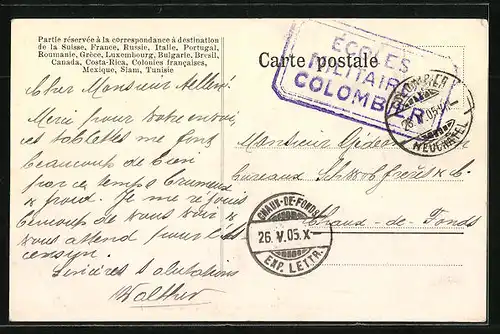 Partie réservée à la correspondance à destination
de la Suisse, France, Russie, Italie, Portugal,
Roumanie, Grèce, Luxembourg, Bulgarie, Bresil,
Canada, Costa-Rica, Colonies françaises,
Mexique, Siam, Tunisie
Cher Monsieur
Merci pour votre envoi,
ces tablettes me font
beaucoup de bien
par ce temps brumeux
& froid. Je me réjouis
beaucoup de vous voir &
vous attend pour
Sincères salutations
Walther
Carte postale
ÉCOLES
MILITAIRES
COLOMBIER
COLOMBIER
26.V.05
(NEUCHÂTEL)
Monsieur Gédéon
bureaux Schwob frères & C.
Chaux-de-Fonds
CHAUX-DE-FONDS
26.V.05.X—
EXP. LETTR.